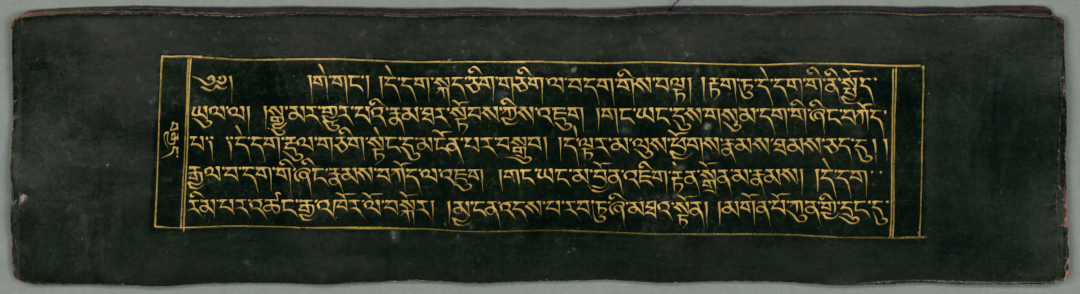 ༄༅། །གེ་གང༌། །དེ་དག་སྐད་ཅིག་གཅིག་ལ་བདག་གིས་བལྟ། །རྟག་ཏུ་དེ་དག་གི་ནི་སྤྱོད་
ཡུལ་ལ། །སྒྱུ་མར་གྱུར་པའི་རྣམ་ཐར་སྟོབས་ཀྱིས་འཇུག །གང་ཡང་དུས་གསུམ་དག་གི་ཞིང་བཀོད་
པ༑ ༑དེ་དག་རྡུལ་གཅིག་སྟེང་དུ་མངོན་པར་བསྒྲུབ། །དེ་ལྟར་མ་ལུས་ཕྱོགས་རྣམས་ཐམས་ཅད་དུ། །
རྒྱལ་བ་དག་གི་ཞིང་རྣམས་བཀོད་ལ་འཇུག །གང་ཡང་མ་བྱོན་འཇིག་རྟེན་སྒྲོན་མ་རྣམས། །དེ་དག་
རིམ་པར་འཚང་རྒྱ་འཁོར་ལོ་བསྐོར། །མྱ་ངན་འདས་པ་རབ་ཏུ་ཞི་མཐའ་སྟོན། །མགོན་པོ་ཀུན་གྱི་དྲུང་དུ་